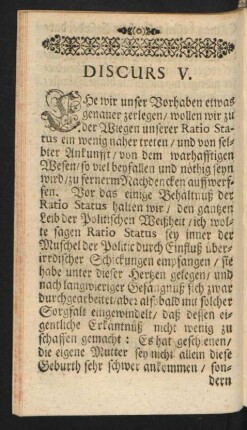 (o)
DISCURS V.
EHe wir unser Vorhaben etwas
genauer zerlegen/ wollen wir zu
der Wiegen unserer Ratio Sta-
tus ein wenig naher treten/ und von sel-
bter Ankunfft/ von dem warhafftigen
Wesen/ so viel beyfallen und nöthig seyn
wird/ zu fernerm Nachdencken auffwerf-
fen. Vor das einige Behältnuß der
Ratio Status halten wir/ den gantzen
Leib der Politischen Weißheit/ ich wol-
te sagen Ratio Status sey inner der
Muschel der Politic durch Einfluß über-
irrdischer Schickungen empfangen/ sie
habe unter dieser Hertzen gelegen/ und
nach langwieriger Gefängnuß sich zwar
durchgearbeitet/ aber alsobald mit solcher
Sorgfalt eingewindelt/ daß dessen ei-
gentliche Erkäntnüß nicht wenig zu
schaffen gemacht: Es hat geschienen/
die eigene Mutter sey nicht allein diese
Geburth sehr schwer ankommen/ son-
dern